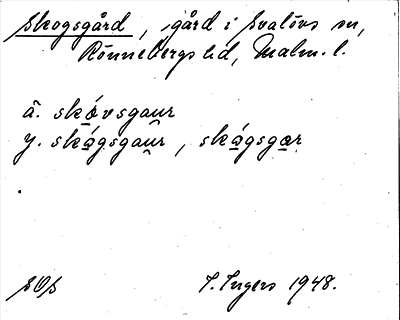 Skogsgård, gård i Svalövs sn,
Rönnebergs hd, Malm. l.
ä. skóvsgaur
y. skógsgaur, skógsgær
SOS I. Ingers 1948.